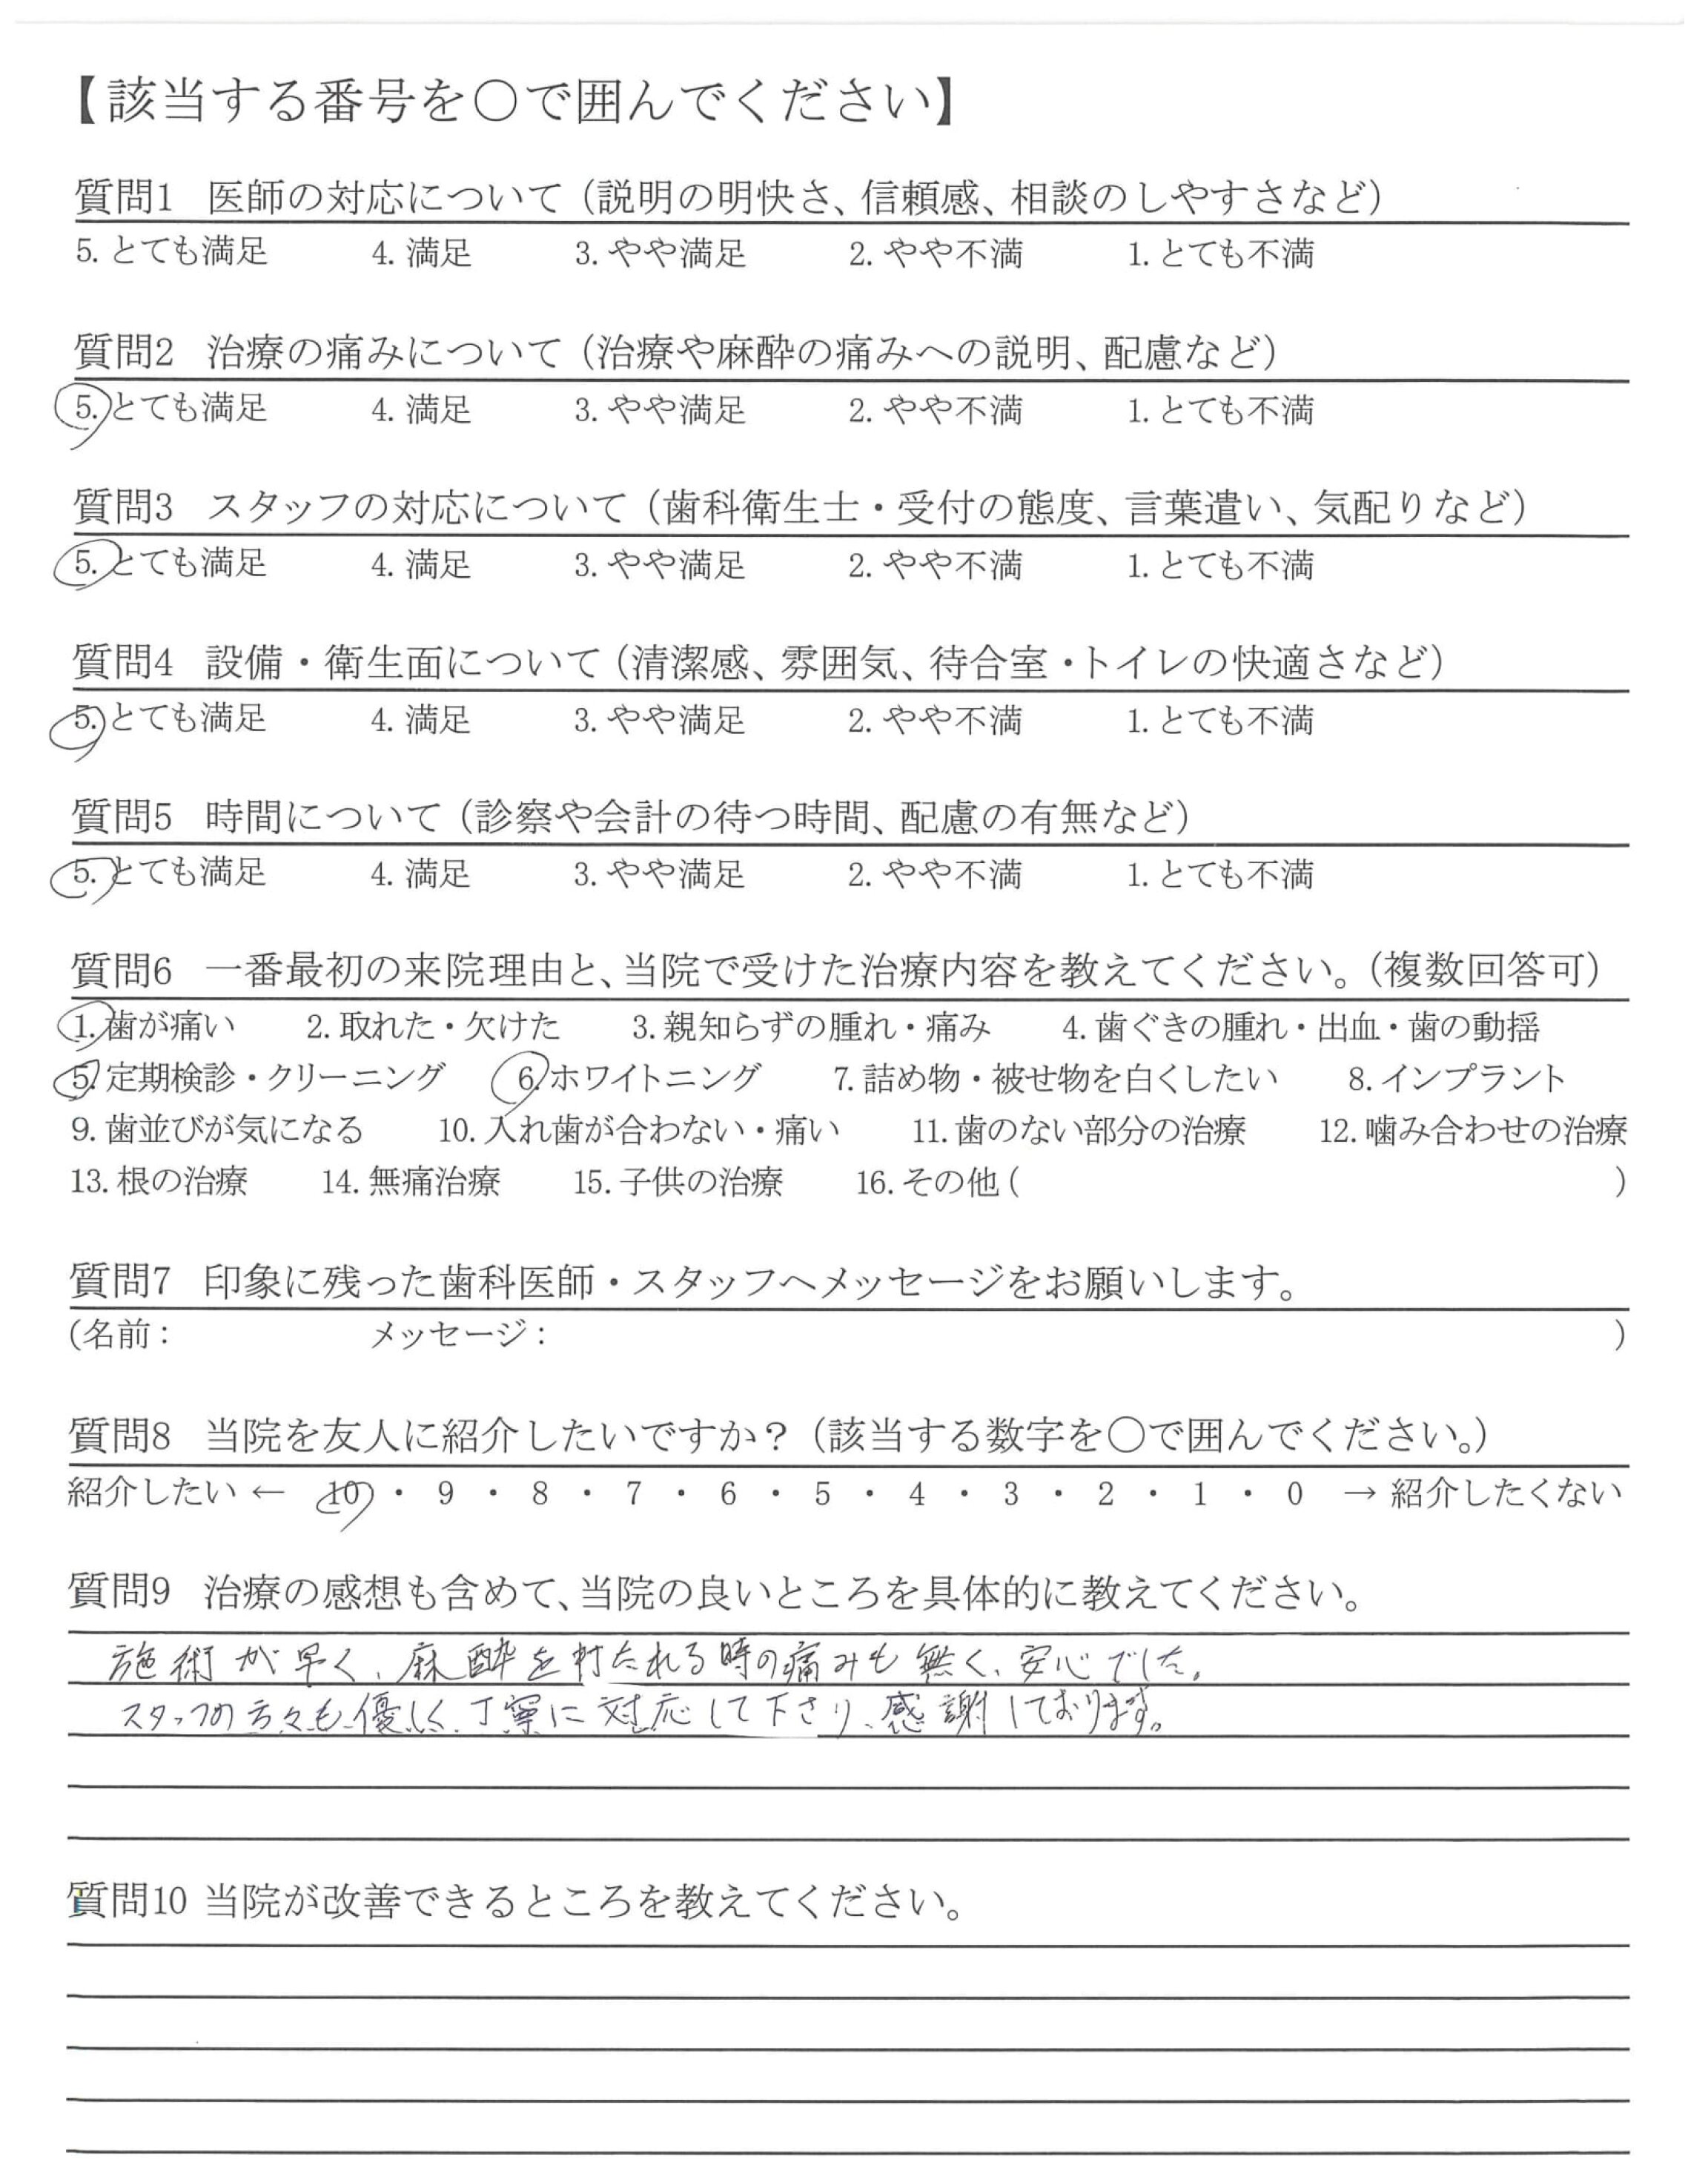 【該当する番号を〇で囲んでください】
質問1 医師の対応について（説明の明快さ、信頼感、相談のしやすさなど）
5. とても満足 4. 満足 3. やや満足 2. やや不満 1. とても不満
質問2 治療の痛みについて（治療や麻酔の痛みへの説明、配慮など）
5. とても満足 4. 満足 3. やや満足 2. やや不満 1. とても不満
質問3 スタッフの対応について（歯科衛生士・受付の態度、言葉遣い、気配りなど）
5. とても満足 4. 満足 3. やや満足 2. やや不満 1. とても不満
質問4 設備・衛生面について（清潔感、雰囲気、待合室・トイレの快適さなど）
5. とても満足 4. 満足 3. やや満足 2. やや不満 1. とても不満
質問5 時間について（診察や会計の待つ時間、配慮の有無など）
5. とても満足 4. 満足 3. やや満足 2. やや不満 1. とても不満
質問6 一番最初の来院理由と、当院で受けた治療内容を教えてください。（複数回答可）
1. 歯が痛い 2. 取れた・欠けた 3. 親知らずの腫れ・痛み 4. 歯ぐきの腫れ・出血・歯の動揺
5. 定期検診・クリーニング 6. ホワイトニング 7. 詰め物・被せ物を白くしたい 8. インプラント
9. 歯並びが気になる 10. 入れ歯が合わない・痛い 11. 歯のない部分の治療 12. 噛み合わせの治療
13. 根の治療 14. 無痛治療 15. 子供の治療 16. その他（ ）
質問7 印象に残った歯科医師・スタッフへメッセージをお願いします。
（名前： メッセージ： ）
質問8 当院を友人に紹介したいですか？（該当する数字を〇で囲んでください。）
紹介したい ← 10 ・ 9 ・ 8 ・ 7 ・ 6 ・ 5 ・ 4 ・ 3 ・ 2 ・ 1 ・ 0 → 紹介したくない
質問9 治療の感想も含めて、当院の良いところを具体的に教えてください。
施術が早く、麻酔を打たれる時の痛みも無く、安心でした。
スタッフの方々も優しく、丁寧に対応して下さり、感謝しております。
質問10 当院が改善できるところを教えてください。